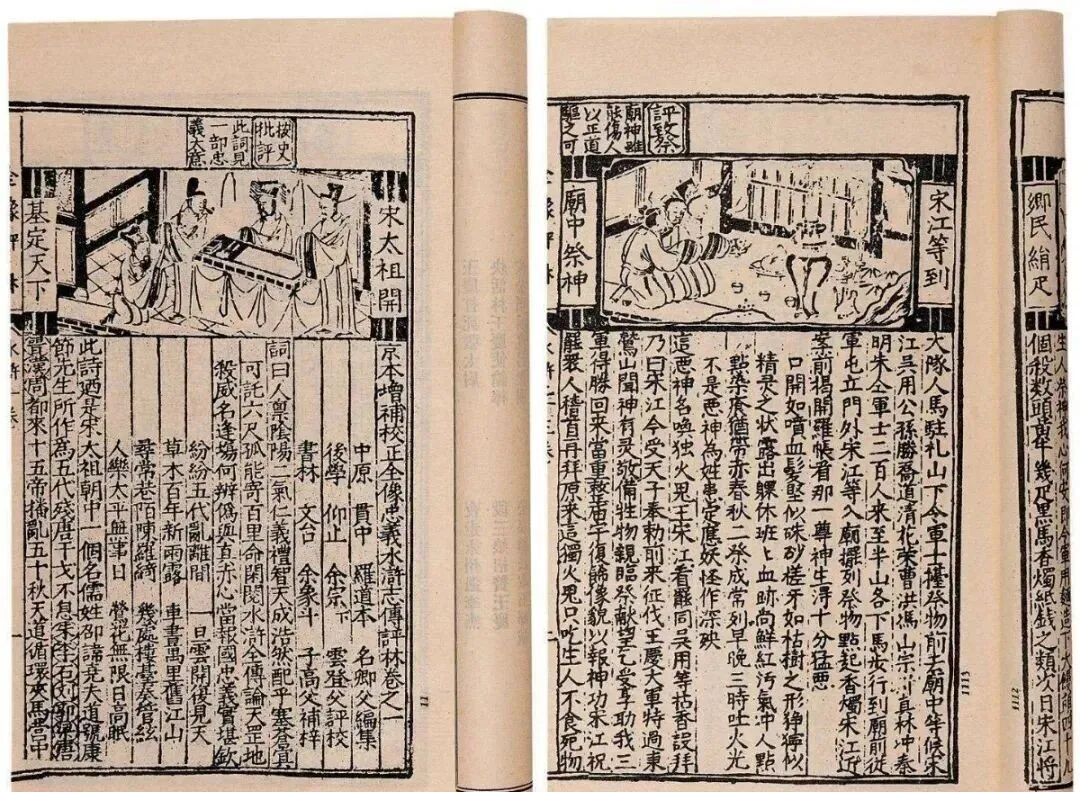 按史
批評
此詞見
一部忠
義大意
宋太祖開
基定天下
京本增補校正全像忠義水滸志傳評林卷之一
中原 貫中 羅道本 名卿父編集
後學 仰止 余宗下 雲登父評校
書林 文台 余象斗 子高父補梓
詞曰人禀陰陽二氣仁義禮智天成浩然配乎塞蒼冥
可託六尺孤能寄百里命閑閱水滸全傳論天罡地
殺威名逢場何辨偽與真赤心當報國忠義實堪欽
紛紛五代亂離間 一旦雲開復見天
草木百年新雨露 車書萬里舊江山
尋常巷陌陳羅綺 幾處樓臺奏管絃
人樂太平無事日 鶯花無限日高眠
此詩廼是宋太祖朝中一個名儒姓邵諱堯夫道號康
節先生所作為五代殘唐干戈不息朱李石劉郭梁唐
晉漢周都來十五帝播亂五十秋天道循環夾馬營中
評改祭
廟神雖
能傷人
以正道
驅之可
宋江等到
廟中祭神
大隊人馬駐札山下令軍士擡祭物前去廟中等候宋
江吳用公孫勝喬道清花榮曹洪馮山宗
真林冲秦
明朱仝軍士二百人來至半山各下馬步行到廟前從
軍屯立門外宋江等入廟擺列祭物點起香燭宋江近
案前揭開羅帳看那一尊神生得十分猛惡
口開如噴血髮堅似硃砂槎牙如枯樹之形猙獰似
精灵之状露出躶休班上血跡尚鮮紅污氣冲人點
點染疾猶帶赤春秋二祭成常列早晚三時吐火光
不是惡神為姓患定應妖怪作深殃
這惡神名喚独火鬼王宋江看罷同吳用等拈香設拜
乃曰宋江今受天子奏勅前來征伐王慶大軍特過東
鷲山聞神有灵敬備牲物親臨祭献望乞受享助我三
軍得勝回來當重整庙宇復飾像貌以報神功宋江祝
罷衆人稽首再拜原來這獨火鬼只吃生人不食死物
鄉民絹疋
個殺數頭
幾疋黑馬香燭紙錢之類次日宋江將